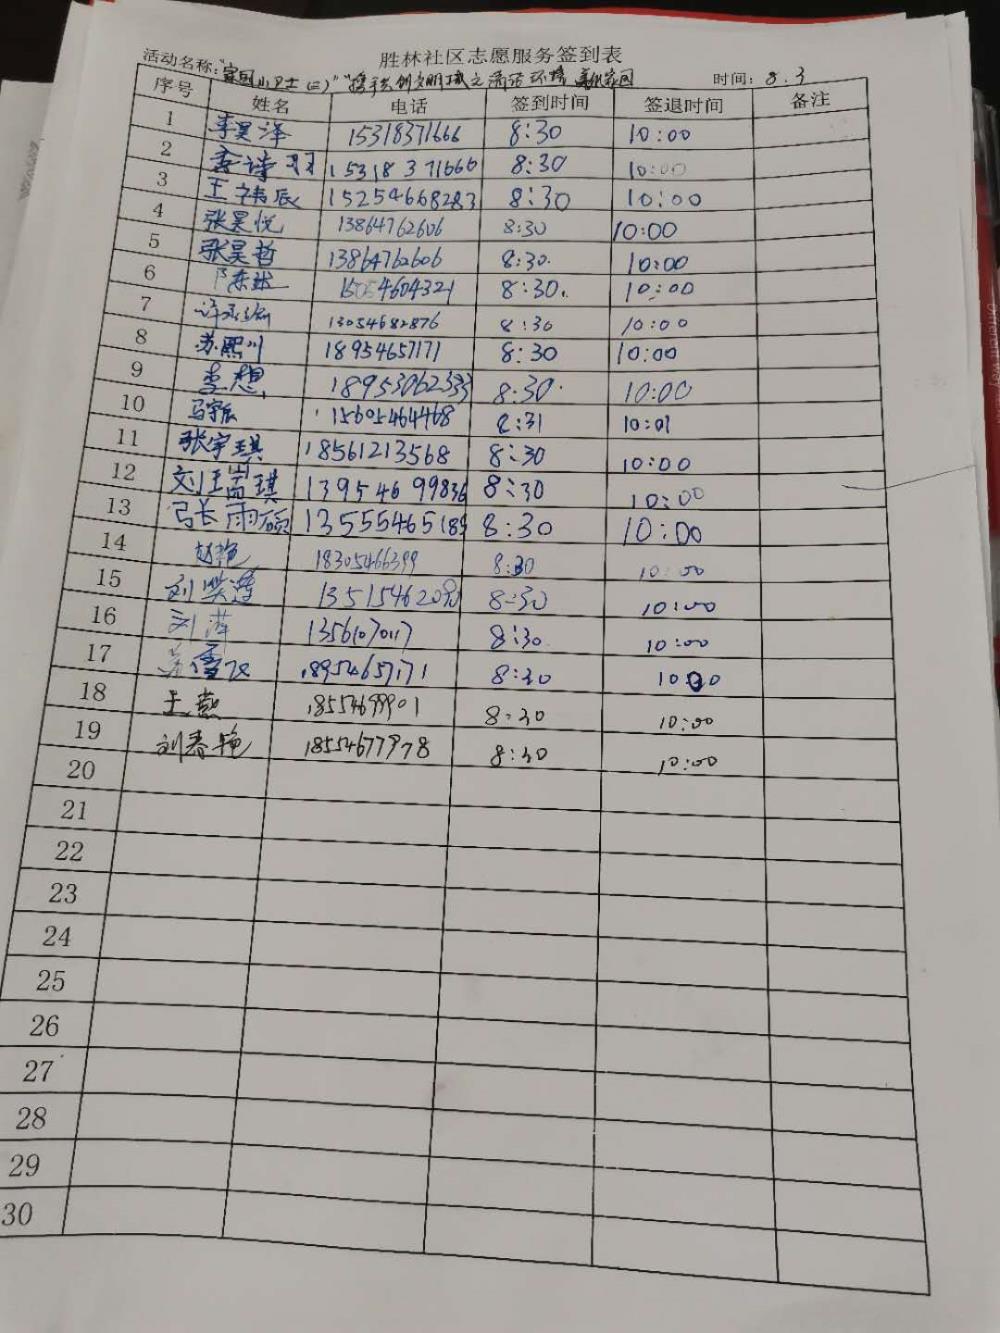 胜林社区志愿服务签到表
活动名称：家园小卫士（三）"携手共创文明城之清洁环境 美化家园 时间：8.3
序号 姓名 电话 签到时间 签退时间 备注
1 李昊泽 15318371666 8:30 10:00
2 李诗羽 15318371666 8:30 10:00
3 王祎辰 15254668283 8:30 10:00
4 张昊悦 13864762606 8:30 10:00
5 张昊哲 13864762606 8:30. 10:00
6 15054604321 8:30.. 10:00
7 13054682876 8:30 10:00
8 苏熙川 18954657171 8:30 10:00
9 李想 18953062333 8:30. 10:00
10 马宇辰 15605464468 8:31 10:01
11 张宇琪 18561213568 8:30 10:00
12 刘王岿琪 13954699836 8:30 10:00
13 张雨硕 13555465189 8:30 10:00
14 赵艳 18305466399 8:30 10:00
15 刘 8:30 10:00
16 刘萍 13561070117 8:30. 10:00
17 18954657171 8:30 10:00
18 王燕 8:30 10:00
19 刘春艳 18554677978 8:30 10:00
20
21
22
23
24
25
26
27
28
29
30